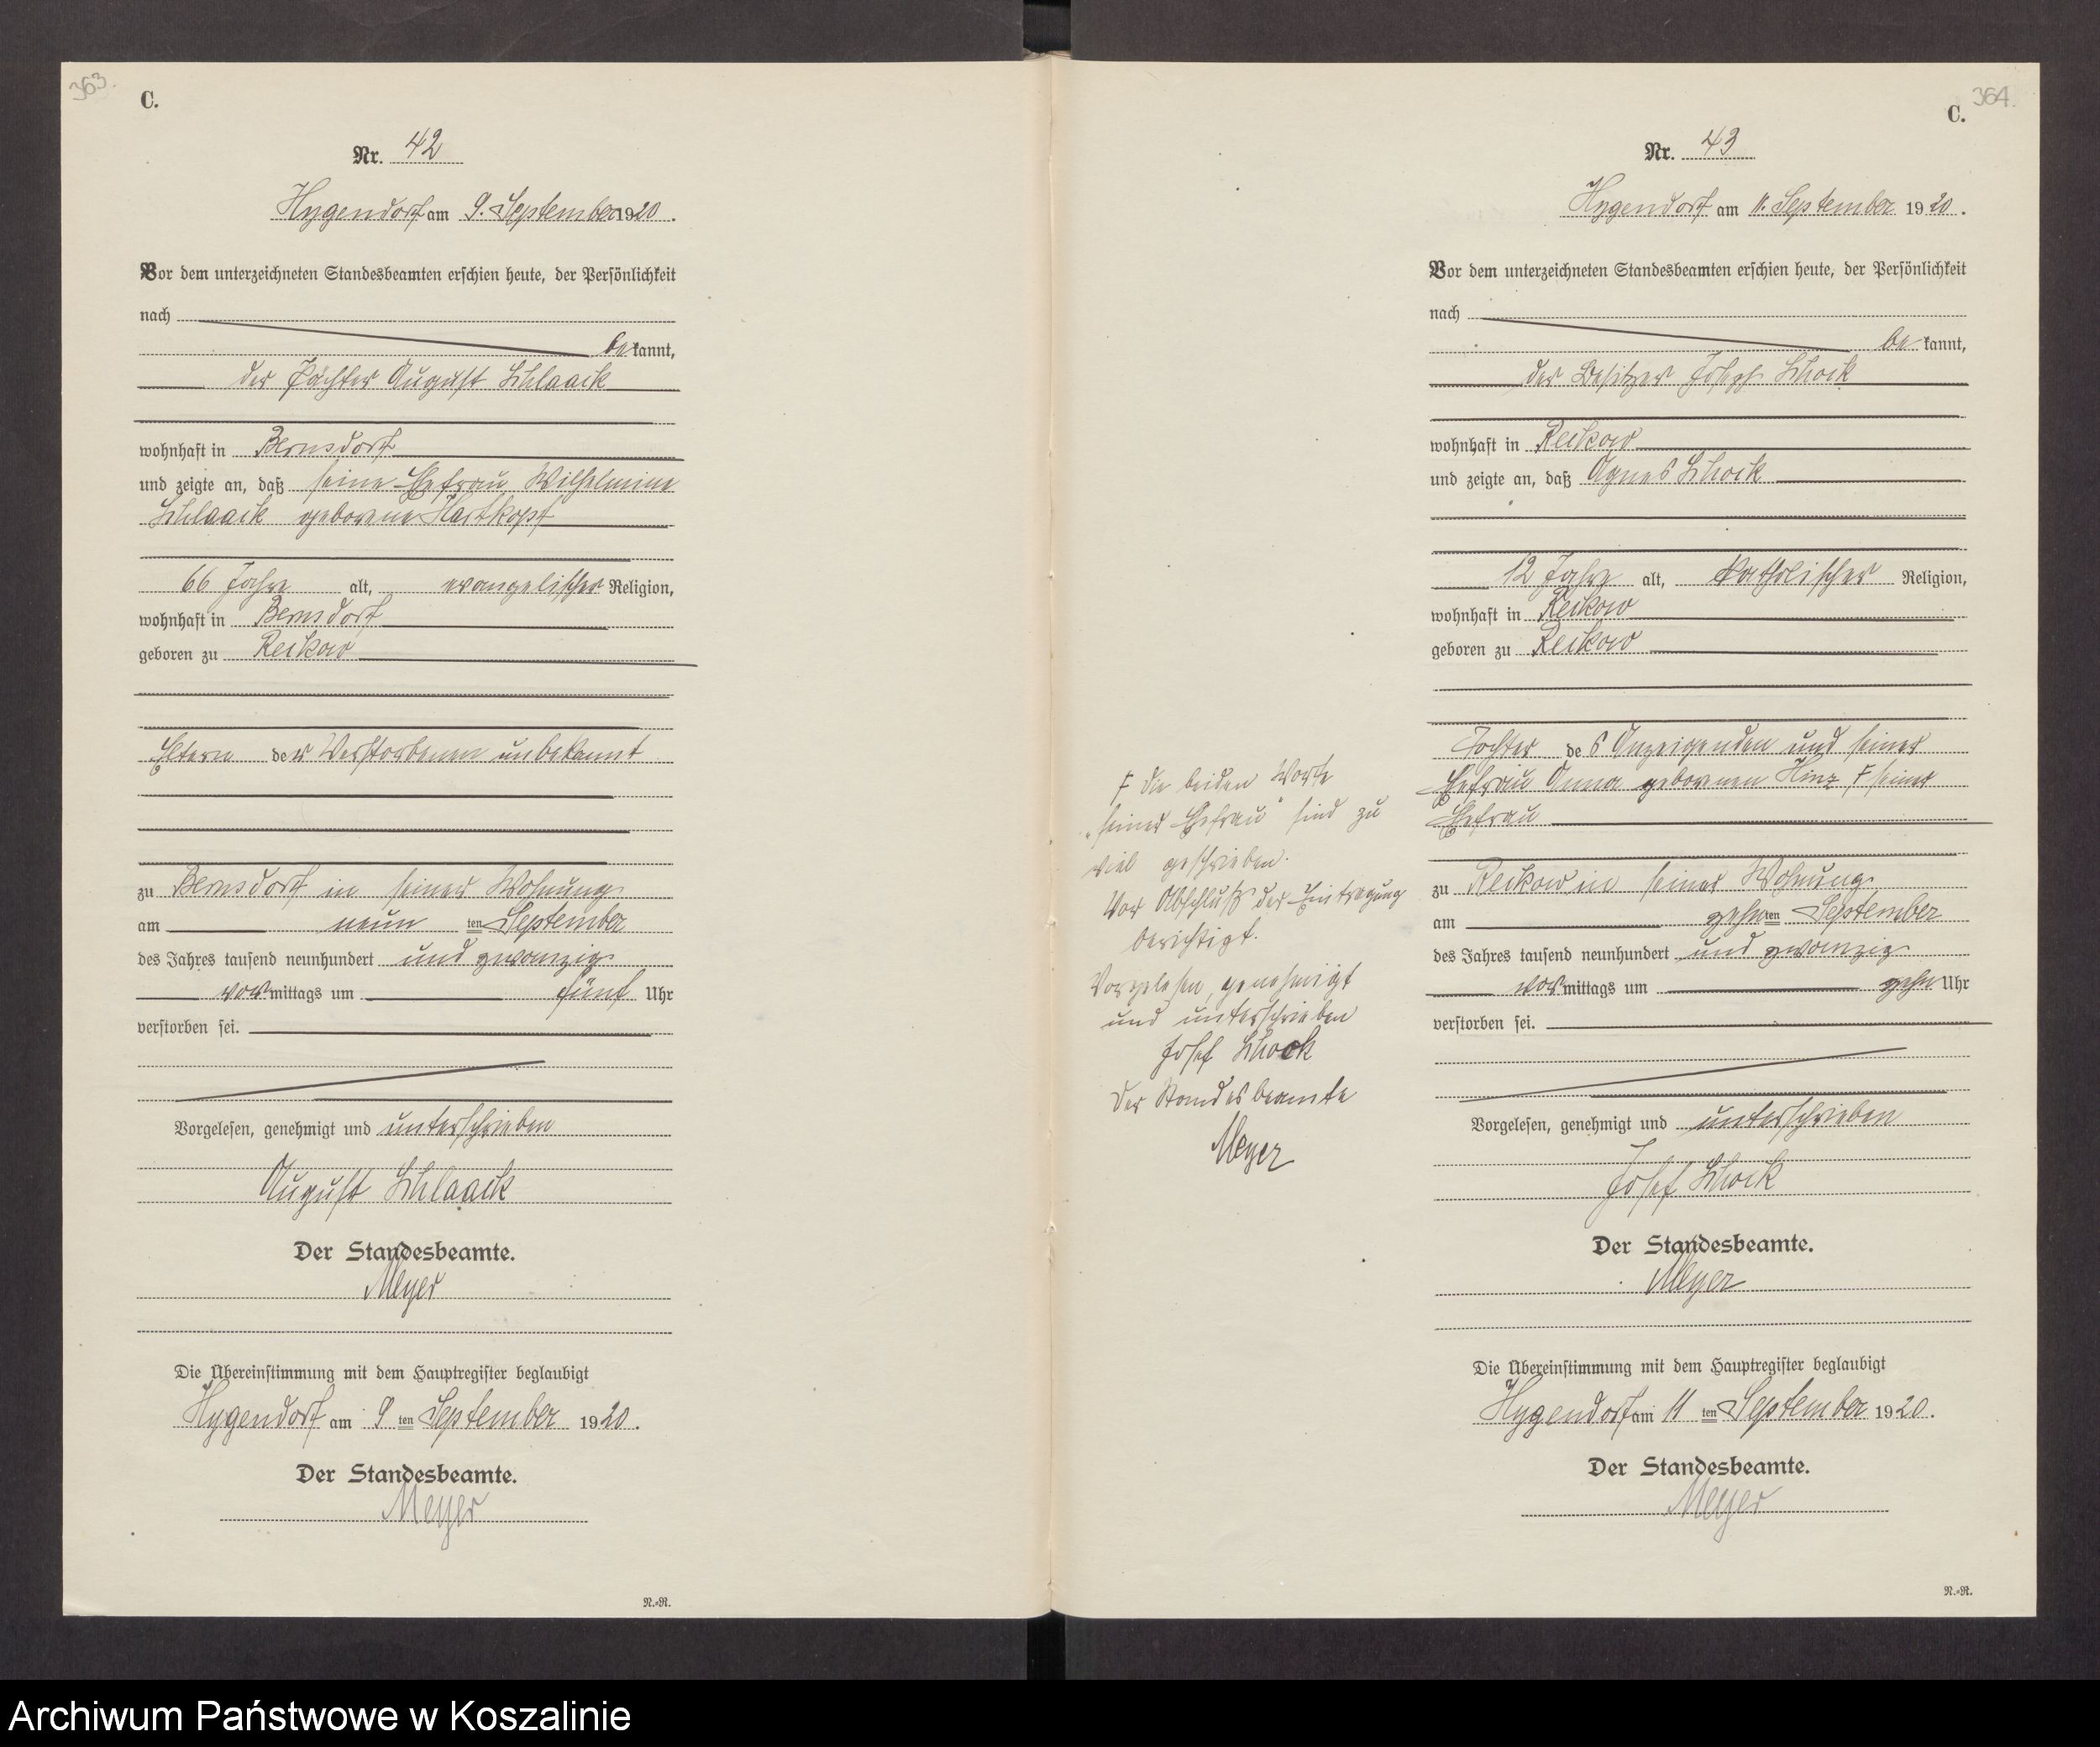 363.
C.
Nr. 42
Hygendorf am 9. September 1920.
Vor dem unterzeichneten Standesbeamten erschien heute, der Persönlichkeit
nach
bekannt,
der Pächter August Schlaack
wohnhaft in Bernsdorf
und zeigte an, daß seine Ehefrau Wilhelmine
Schlaack geborene Hartkopf
66 Jahre alt, evangelischer Religion,
wohnhaft in Bernsdorf
geboren zu Reckow
Eltern der Verstorbenen unbekannt
zu Bernsdorf in seiner Wohnung
am neun ten September
des Jahres tausend neunhundert und zwanzig
vormittags um fünf Uhr
verstorben sei.
Vorgelesen, genehmigt und unterschrieben
August Schlaack
Der Standesbeamte.
Meyer
Die Übereinstimmung mit dem Hauptregister beglaubigt
Hygendorf am 9 ten September 1920.
Der Standesbeamte.
Meyer
N.-R.
364.
C.
Nr. 43
Hygendorf am 11. September 1920.
Vor dem unterzeichneten Standesbeamten erschien heute, der Persönlichkeit
nach
bekannt,
der Besitzer Joseph Schock
wohnhaft in Reckow
und zeigte an, daß Agnes Schock
12 Jahre alt, katholischer Religion,
wohnhaft in Reckow
geboren zu Reckow
Tochter des Anzeigenden und seiner
Ehefrau Anna geborenen Hinz F seiner
Ehefrau
zu Reckow in seiner Wohnung
am zehn ten September
des Jahres tausend neunhundert und zwanzig
vormittags um zehn Uhr
verstorben sei.
F die beiden Worte
"seiner Ehefrau" sind zu
viel geschrieben.
Vor Abschluß der Eintragung
berichtigt.
Vorgelesen, genehmigt
und unterschrieben
Josef Schock
Der Standesbeamte
Meyer
Vorgelesen, genehmigt und unterschrieben
Josef Schock
Der Standesbeamte.
Meyer
Die Übereinstimmung mit dem Hauptregister beglaubigt
Hygendorf am 11 ten September 1920.
Der Standesbeamte.
Meyer
N.-R.
Archiwum Państwowe w Koszalinie